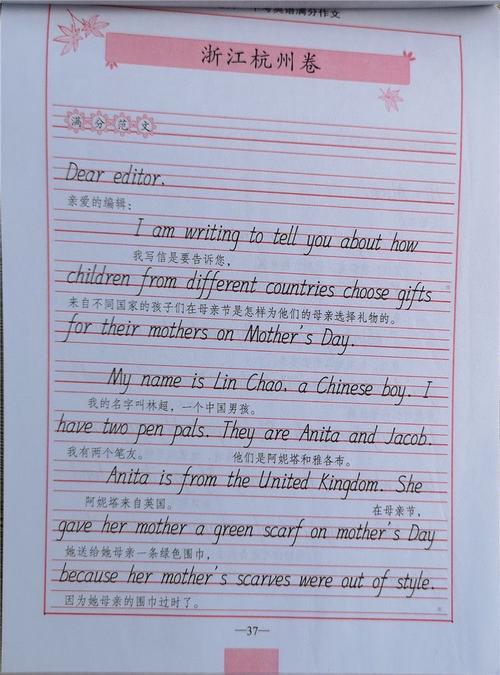 中考英语满分作文
浙江杭州卷
满分范文
Dear editor,
亲爱的编辑：
I am writing to tell you about how
我写信是要告诉您，
children from different countries choose gifts
来自不同国家的孩子们在母亲节是怎样为他们的母亲选择礼物的。
for their mothers on Mother's Day.
My name is Lin Chao, a Chinese boy. I
我的名字叫林超，一个中国男孩。
have two pen pals. They are Anita and Jacob.
我有两个笔友。 他们是阿妮塔和雅各布。
Anita is from the United Kingdom. She
阿妮塔来自英国。 在母亲节，
gave her mother a green scarf on mother's Day
她送给她母亲一条绿色围巾，
because her mother's scarves were out of style.
因为她母亲的围巾过时了。
—37—